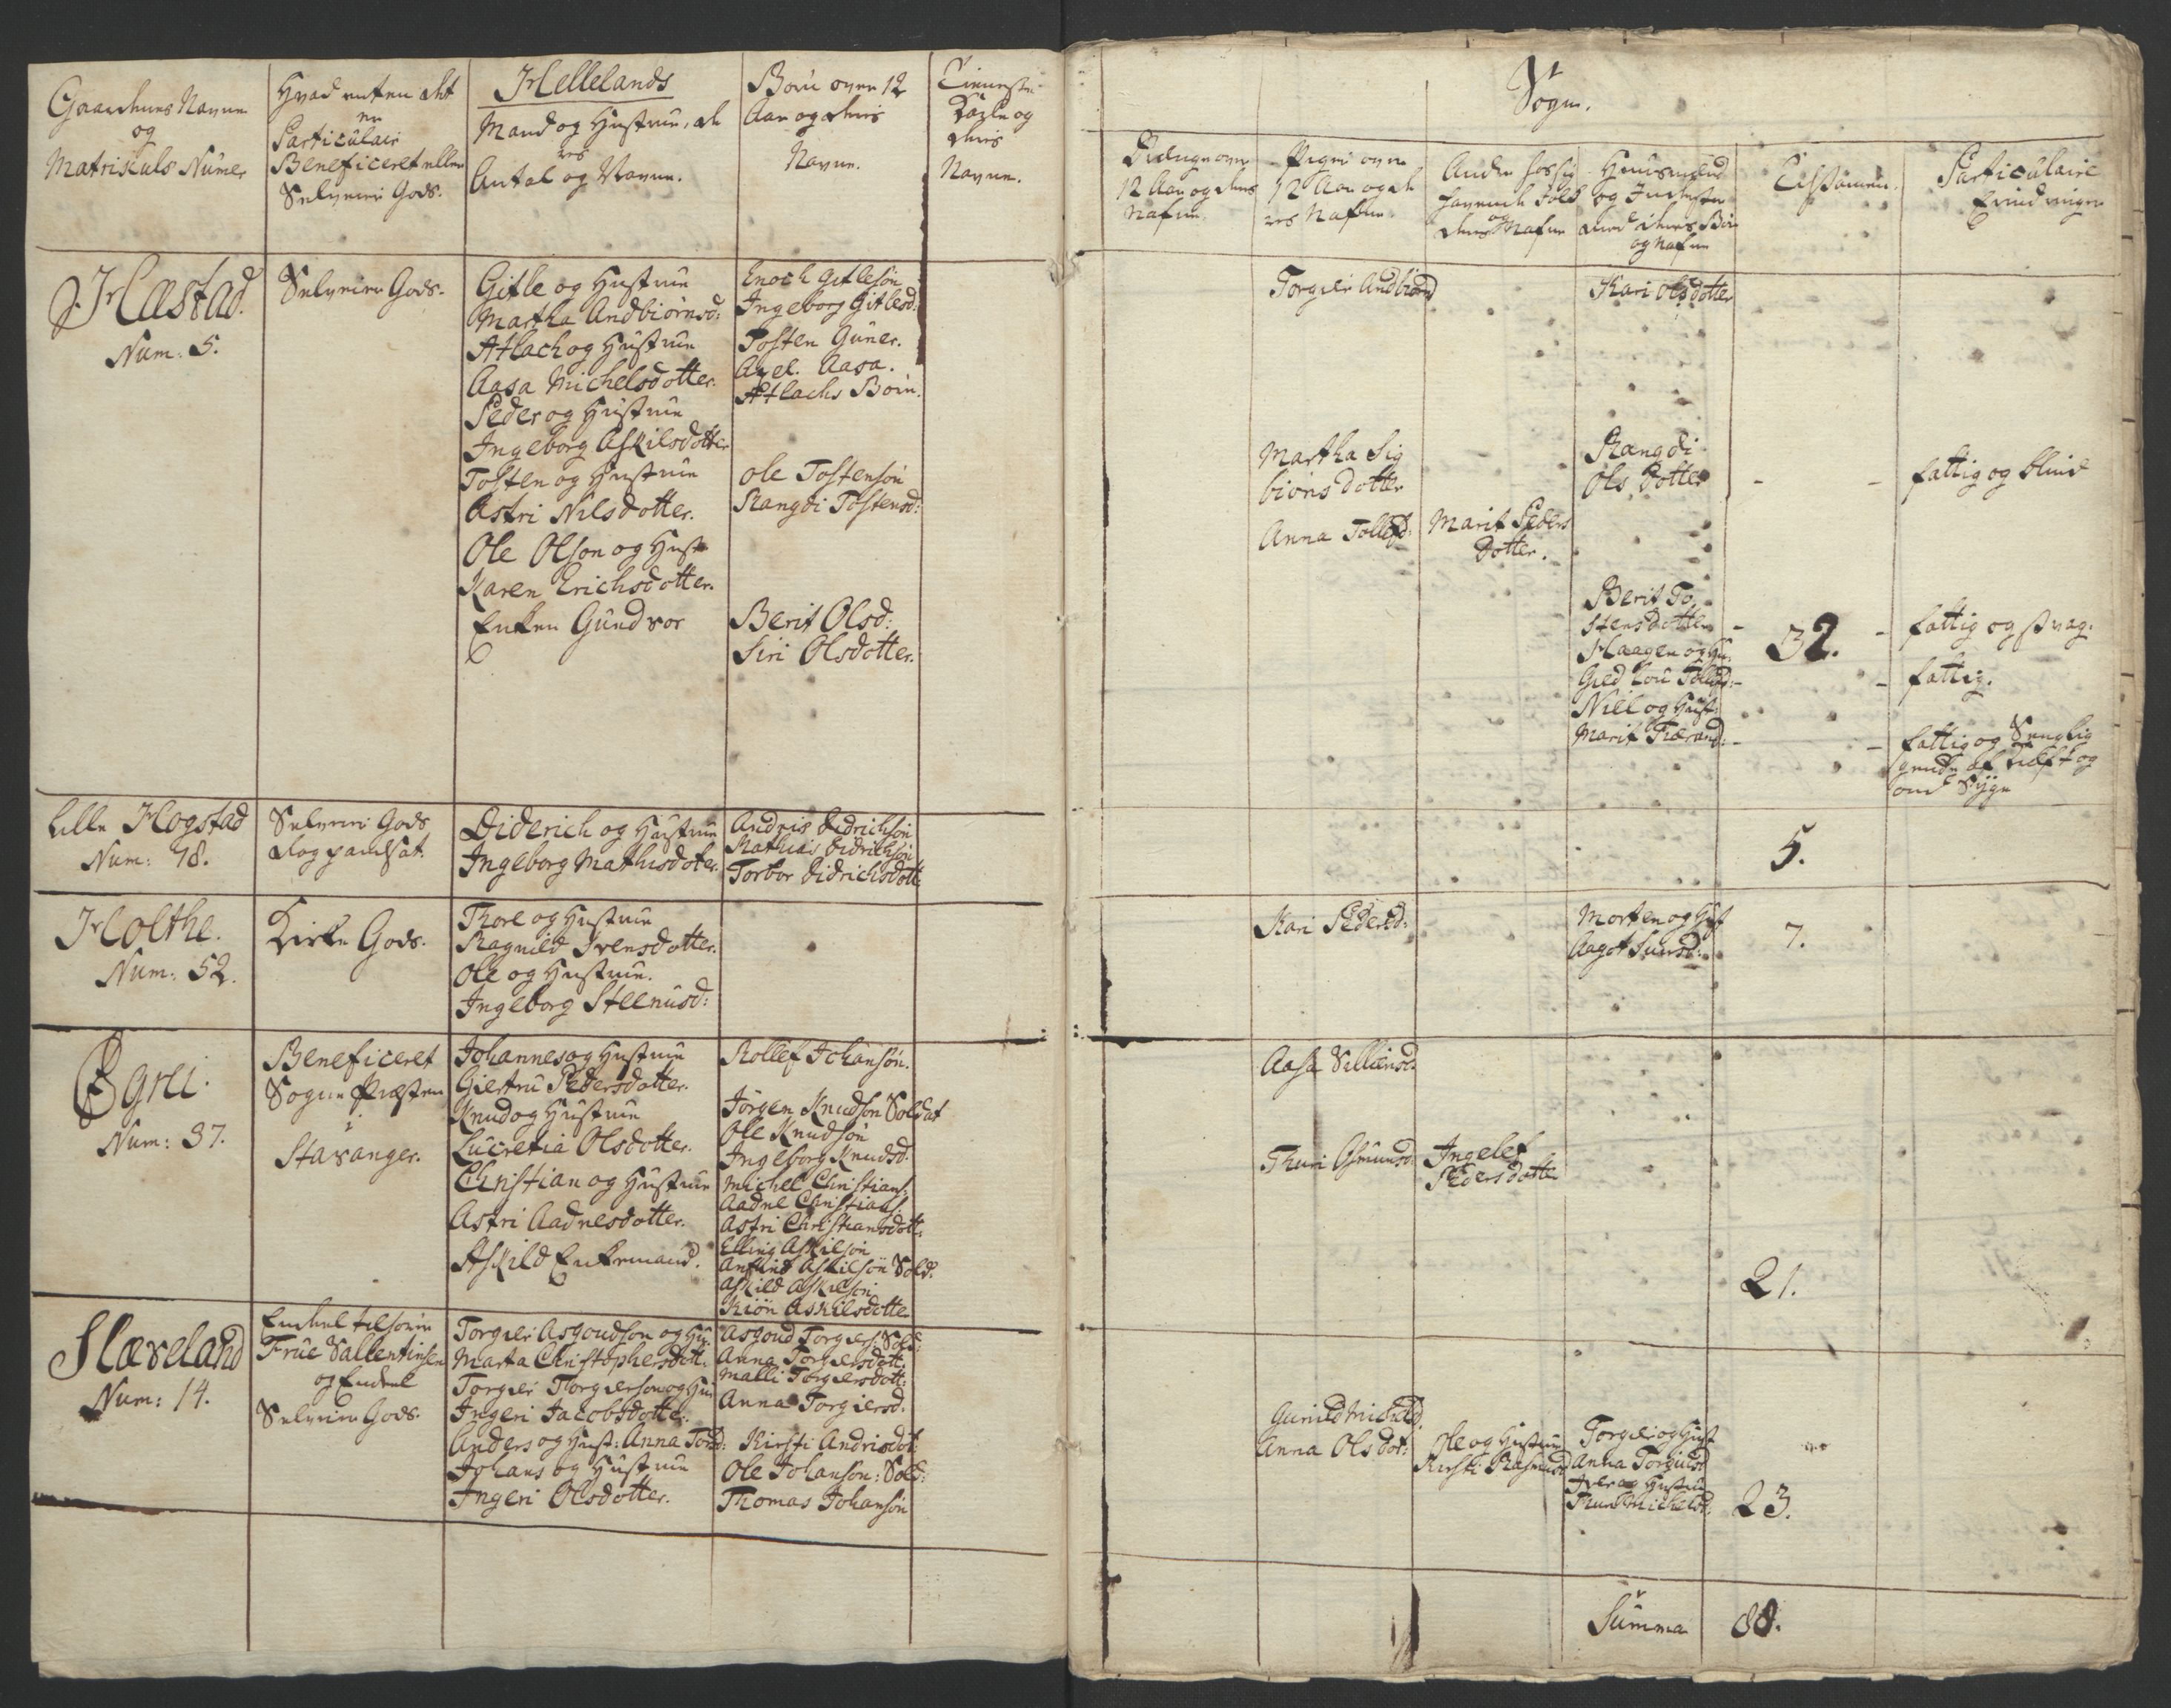 Gaardenes Navne
og
Matriculs Numer
Hvad enten det
er
Particulair
Beneficeret eller
Selveier Gods.
Hellelands
Mand og Hustrue, de
res
Antal og Navne.
Børn over 12
Aar og deres
Navne.
Tieneste
Karle og
deres
Navne.
Hæstad.
Num: 5.
Selveier Gods.
Gitle og Hustrue
Martha Andbiørnsd:
Atlach og Hustrue
Aasa Michelsdotter.
Peder og Hustrue
Ingeborg Askilsdotter
Tosten og Hustrue
Astri Nilsdotter.
Ole Olson og Hust
Karen Erichsdotter.
Enken Gundvor
Enoch Gitlesøn
Ingeborg Gitlesd:
Tosten Guner.
Axel. Aasa.
Atlachs Børn.
Ole Tostensøn
Rangdi Tostensd:
Berit Olsd:
Siri Olsdotter.
Lille Hogstad
Num: 78.
Selveier Gods
Diderich og Hustrue
Ingeborg Mathisdoter.
Andreis Didrichsøn
Mathias Didrichsøn
Torbor Didrichsdott:
Holthe.
Num: 52.
Kirke Gods.
Thore og Hustrue
Ragnild Ivensdotter.
Ole og Hustrue.
Ingeborg Steenusd:
Egrei.
Num: 37.
Beneficeret
Sogne Præsten
i
Stavanger.
Johannes og Hustrue
Giertru Pedersdotter.
Knud og Hustrue
Lucretia Olsdotter.
Christian og Hustrue
Astri Aadnesdotter.
Askild Enkemand.
Rollef Johansøn.
Jørgen Knudson Soldat
Ole Knudsøn
Ingeborg Knudsd.
Michel Christians:
Aadne Christians:
Astri Christiansdott:
Elling Askilsøn
Anfind Askilsøn Sold.
Askild Askilsøn
Kiøn Askilsdotter
Slæveland
Num: 14.
Frue Vallentinsen
og Endeel
Selveier Gods.
Torgier Asgoudson og Hu:
Marta Christophersdott:
Torgier Torgierson og Hu:
Ingeri Jacobsdotter.
Anders og Hust: Anna Tord:
Johans og Hustrue
Ingeri Olsdotter.
Asgoud Torgiers: Sold:
Anna Torgiersdott.
Malli Torgiersdott:
Anna Torgiersd.
Kirsti Andrisdot
Ole Johanson: Sold:
Thomas Johansøn
Sogn.
Drenge over
12 Aar og deres
Nafne
Piger over
12 Aar og de
res Nafne
Andre hos sig
havende Folk
og
deres Nafne
Huusmænd
og Inderster
med deres Børn
og Nafne
Tilsamen.
Particulaire
Erindringer
Torgier Andbiørnd
Kari Olsdotter
Martha Sig
biørnsdotter
Rangdi
Ols Dotter
-
- fattig og blind
Anna Tollefd:
Marit Peders
Dotter.
Berit To
stensdotter -
Haagen og Hu:
Nill og Hust:
Marit Tværand: -
32.
- fattig og svag.
- fattig.
- fattig og Sengelig
gende af Gift og
ond Syge
5.
Kari Pedersd:
Morten og Hust
Aagot Sunsd:
7.
Aasa Villumsd.
Thuri Osmundsd.
Ingelef
Pedersdotter
21.
Gunild Michelsd.
Anna Olsdot:
Ole og Hustrue
Kirsti Rasmusd
Torgier og Hust
Anna Torgiersd
Iver og Hustrue
Thuri Michelsd:
23.
Summa 88.